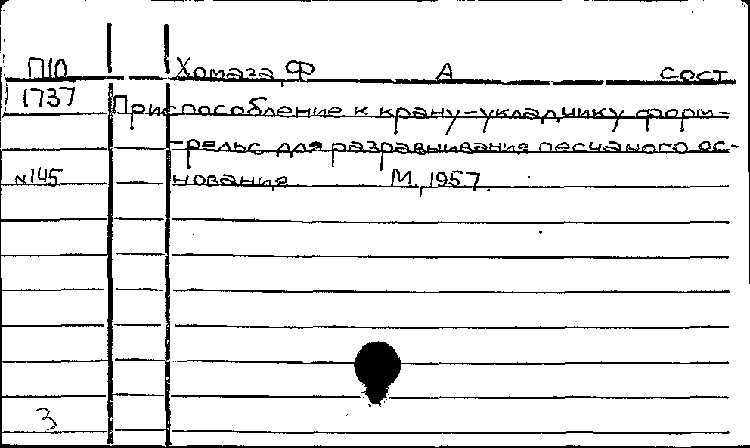 П10 Хомаза, Ф А сост
1737 Приспособление к крану-укладчику форм-
-рельс для разравнивания песчаного ос-
№145 нования М., 1957.
3